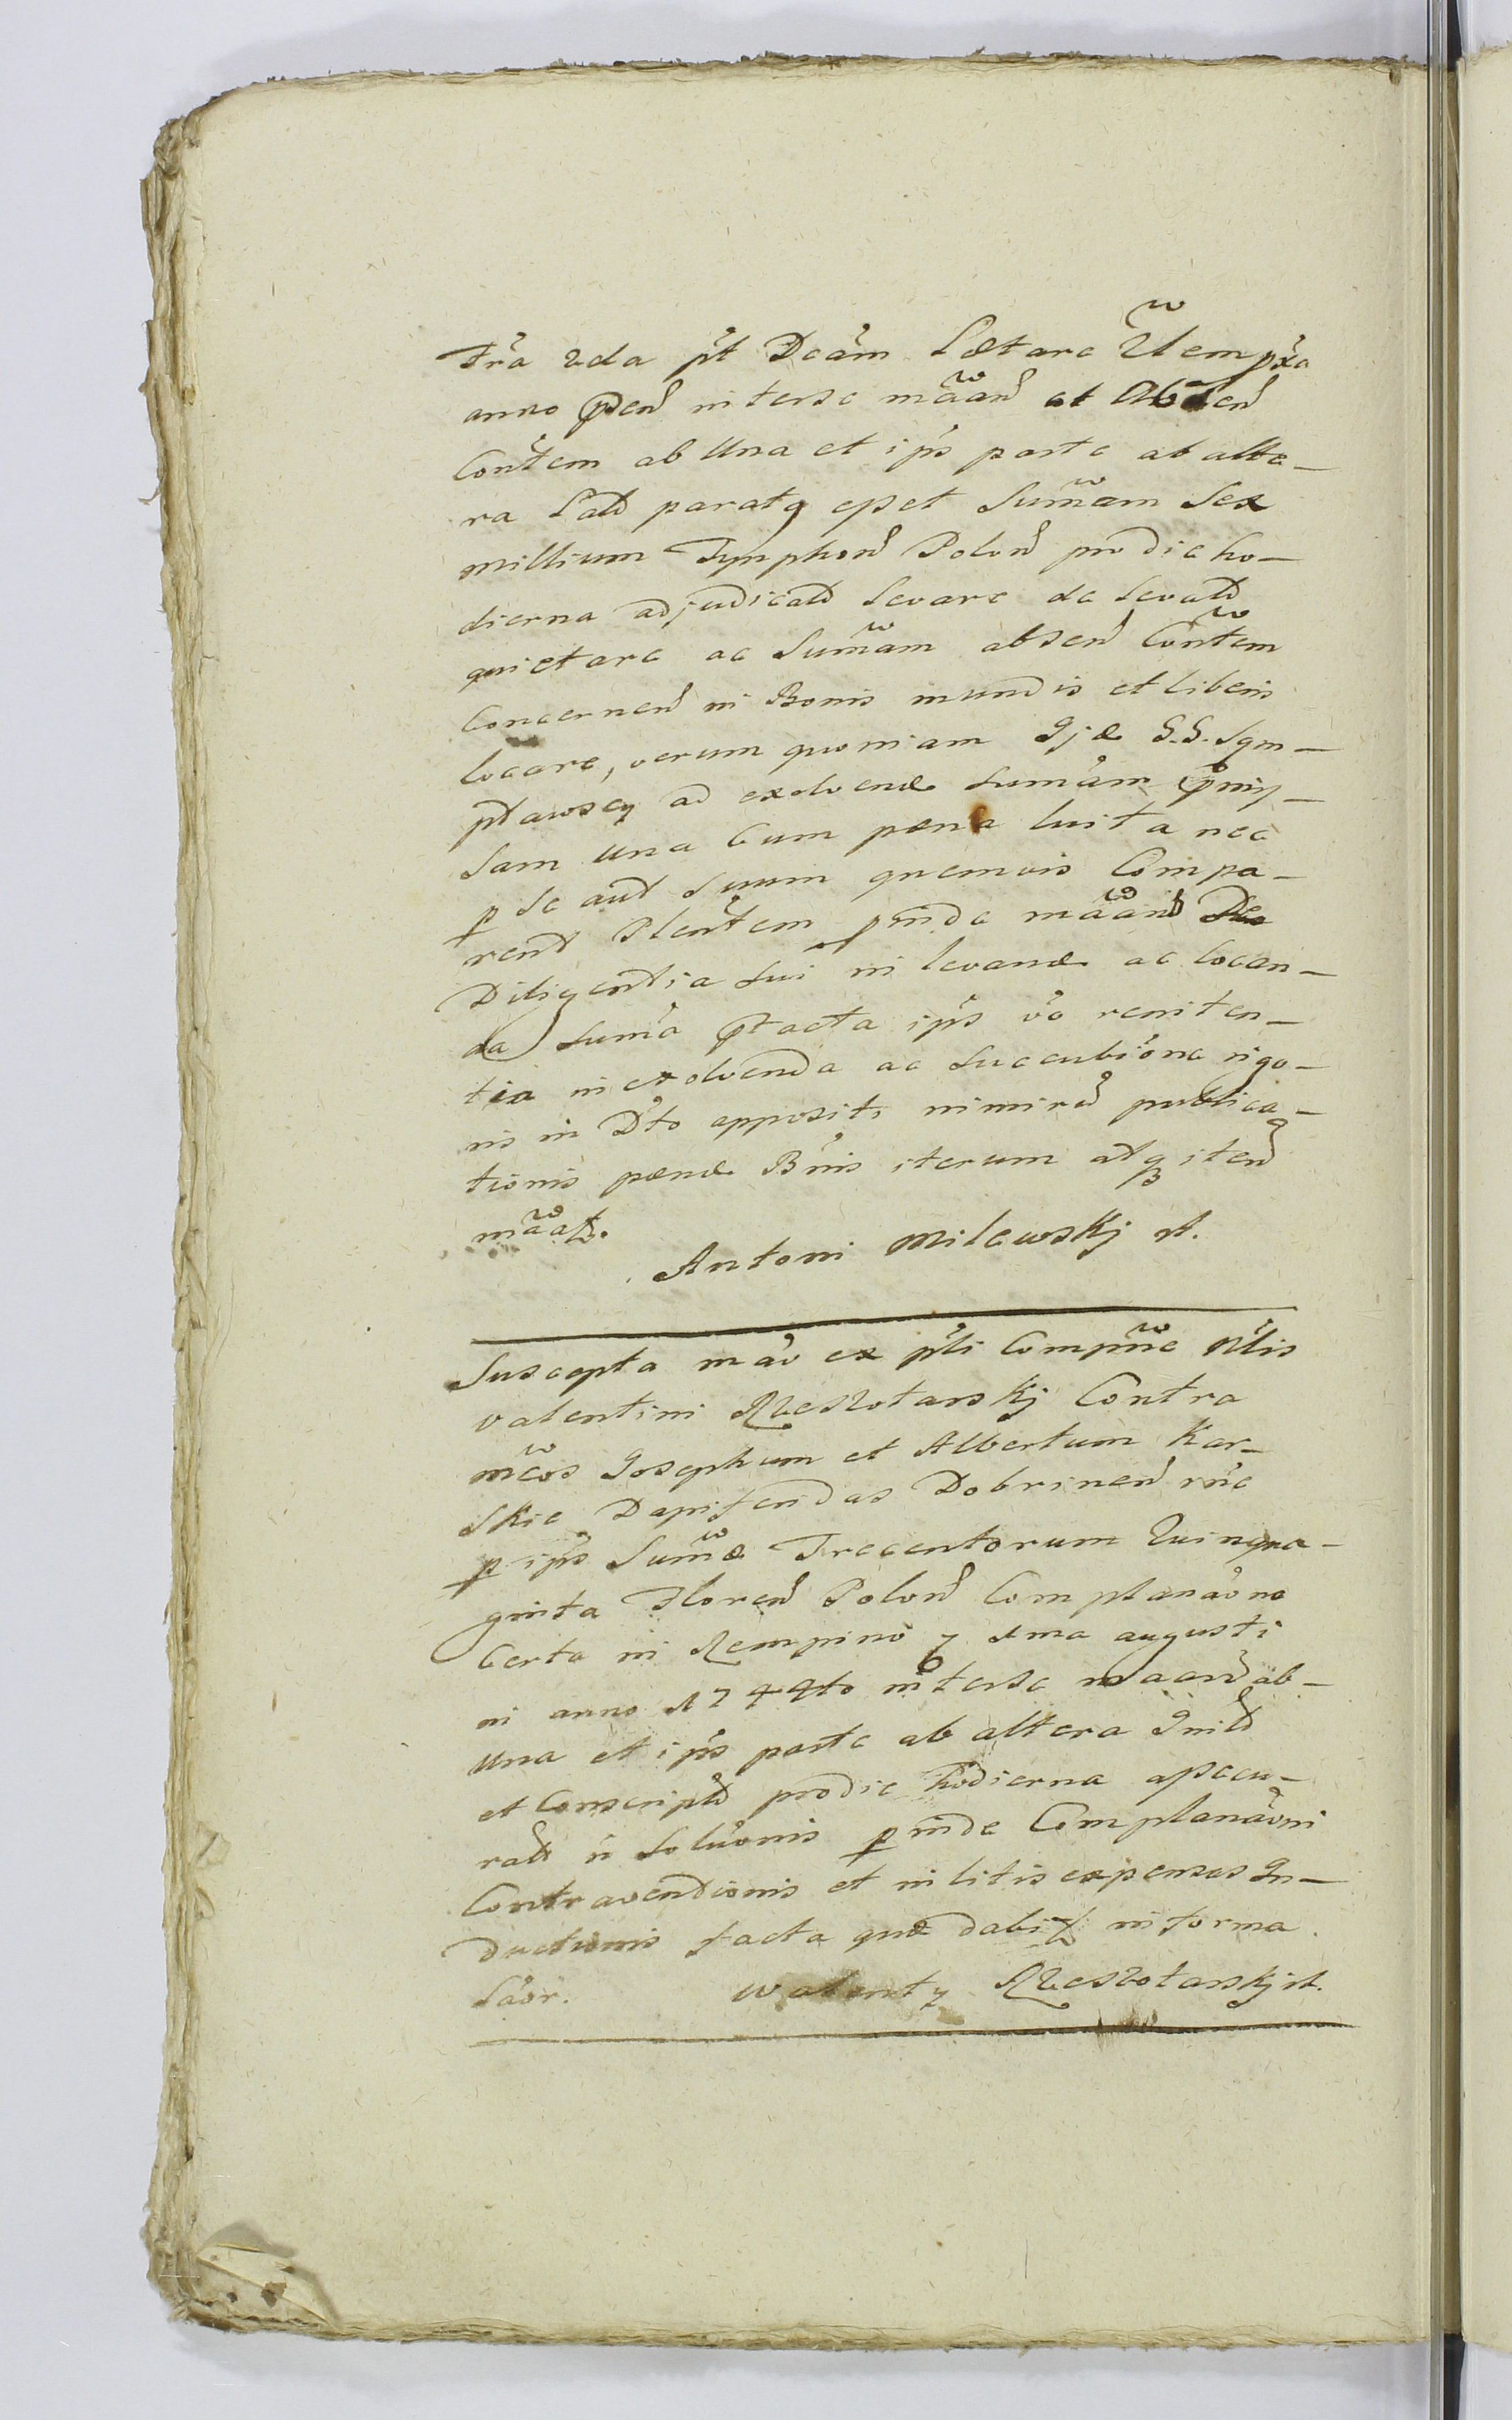 Fra 2da pt Dcam Lætare Ulem pxa
anno pden interse maan et Absen
Contem ab Una et ips parte ab alte-
ra Lat paratq esset Sumam Sex
millium Tymphon Polon pro die ho-
dierna adjudicat levare de levat
quietare ac Sumam absen Contem
Concernen in Bonis mundis et liberis
locare, verum quoniam Gjæ G.G. Sqm-
ptawscy ad exolvend Sumam pmis-
sam una Cum pæna luita nec
p se aut suum quemvis Compa-
rent Plentem pinde maan
Diligentia sui in levand ac locan-
da Suma ptacta ips vo reniten-
tia in exolvenda ac succubione rigo-
ris in Dto appositi nimiru publica-
tionis pænæ Bnis iterum atq iten
maat.
Antoni Milewskj A.
Suscepta mao ex pti Compne Nlis
Valentini Rzeszotarskj Contra
mcos Josephum et Albertum Kar-
skie Dapiferidas Dobrinen rne
p ips Sumæ Trecentorum Quinqua-
ginta Floren Polon Complanaone
Certa in Rempino 7 Ama augusti
in anno 1744to interse maan ab-
una et ips parte ab altera Init
et Conscript pro die hodierna assecu-
rat n Soluonis pinde Complanaoni
Contraventionis et in litis expensas In-
ductionis facta quæ dabit in forma
Saor.
Walenty Rzeszotarskj A.